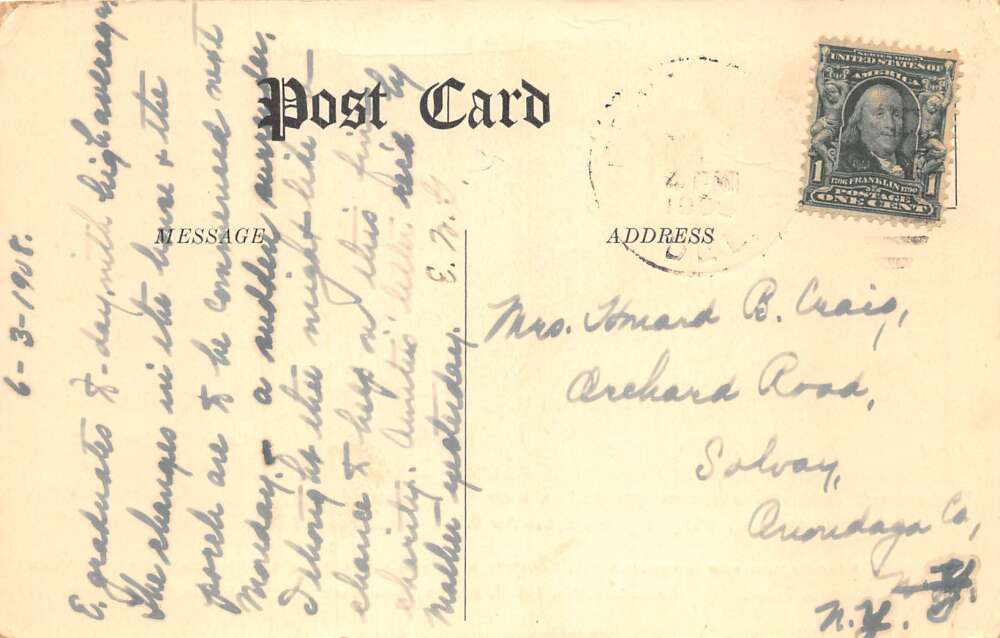 Post Card
MESSAGE
ADDRESS
SERIES 1902
UNITED STATES OF
AMERICA
1706 FRANKLIN 1790
POSTAGE
1 1
ONE CENT
6-3-1908.
E. graduates to-day with high average
The changes in the house & the
porch are to be commenced next
Monday, a sudden surrender,
I thought they might like
chance to help in this fine
charity. Auntie's letter rec'd by
mother yesterday. E. W. G
Mrs. Howard B. Craig,
Orchard Road,
Solvay,
Onondaga Co,
N.Y.